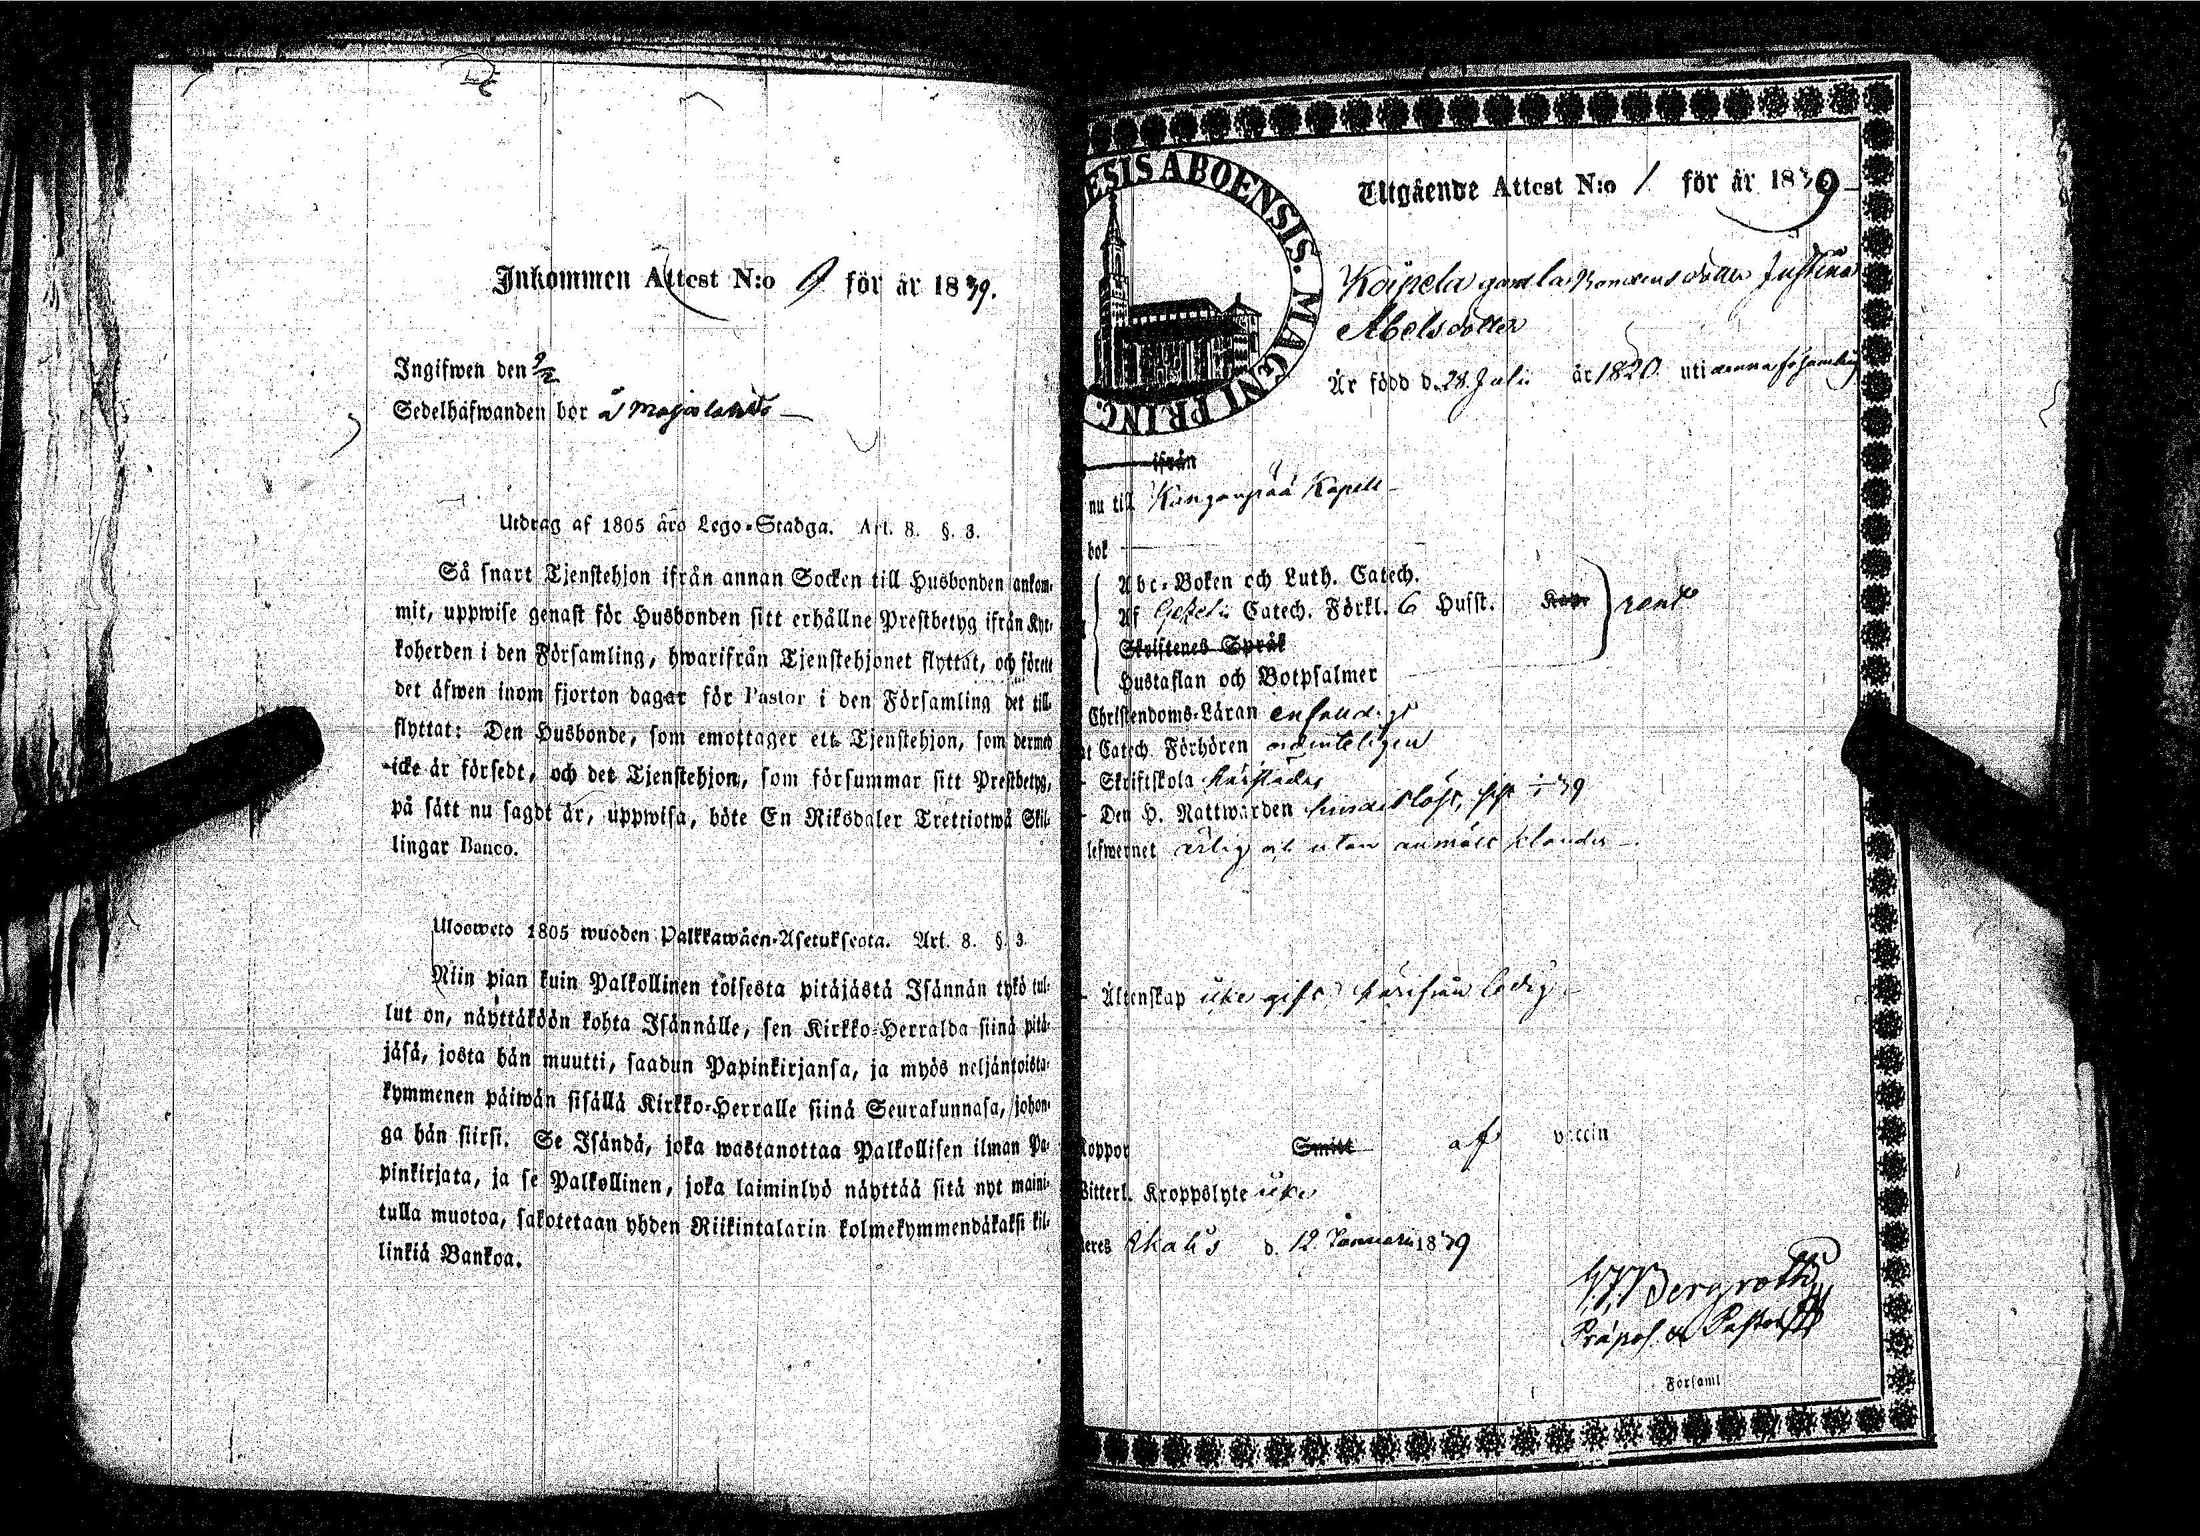 Inkommen Attest N:o 9 för år 1839.
Ingifwen den 9/2
Sedelhafwanden bor å
Utdrag af 1805 års Lego-Stadga. Art. 8. §. 3.
Så snart Tjenstehjon ifrån annan Socken till Husbonden ankom-
mit, uppwise genast för Husbonden sitt erhållne Prestbetyg ifrån Kyr-
koherden i den Församling, hwarifrån Tjenstehjonet flyttat, och förete
det äfwen inom fjorton dagar för Pastor i den Församling det till-
flyttat: Den Husbonde, som emottager ett Tjenstehjon, som dermed
icke är försedt, och det Tjenstehjon, som försummar sitt Prestbetyg,
på sätt nu sagdt är, uppwisa, böte En Riksdaler Trettiotwå Skil-
lingar Banco.
Ulosweto 1805 wuoden Palkkawäen-Asetuksesta. Art. 8. §. 3.
Niin pian kuin Palkollinen toisesta pitäjästä Isännän tykö tul-
lut on, näyttäköön kohta Isännälle, sen Kirkko-Herralda siinä pitä-
jäsä, josta hän muutti, saadun Papinkirjansa, ja myös neljäntoista-
kymmenen päiwän sisällä Kirkko-Herralle siinä Seurakunnasa, johon-
ga hän siirsi. Se Isändä, joka wastanottaa Palkollisen ilman Pa-
pinkirjata, ja se Palkollinen, joka laiminlyö näyttää sitä nyt maini-
tulla muotoa, sakotetaan yhden Riikintalarin kolmekymmendäkaksi kil-
linkiä Bankoa.
ESIS ABOENSIS. MAGNI PRINC.
Utgående Attest N:o 1 för år 1839
Justina
Abelsdotter
Är född d. 28 Julii år 1820 uti denna församling
ifrån
nu till Kangasp Kapell
bok
Abc-Boken och Luth. Catech.
Af Catech. Förkl. 6 Husst.
Skriftenes Språk
Hustaflan och Botpsalmer
rent
Christendoms-Läran enfaldigt
Catech. Förhören ordenteligen
Skriftskola härstädes
Den H. Nattwarden hinderslöst, sist
lefwernet ärlig och utan anmält klander
Äktenskap icke gift, härifrån ledig
Koppor Smitt af vaccin
Witterl. Kroppslyte icke
d. 12 Januarii 1839
Bergroth
Präpos. & Pastor
Församl